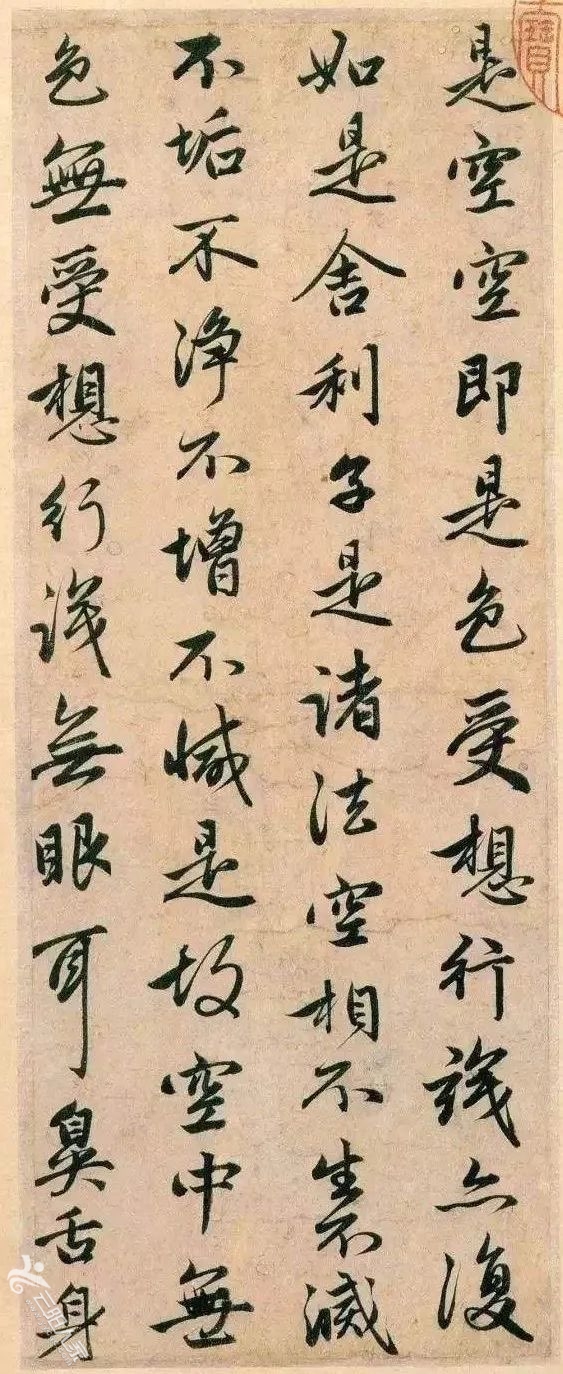 是空空即是色受想行識亦復
如是舍利子是諸法空相不生不滅
不垢不淨不增不減是故空中無
色無受想行識無眼耳鼻舌身
寶